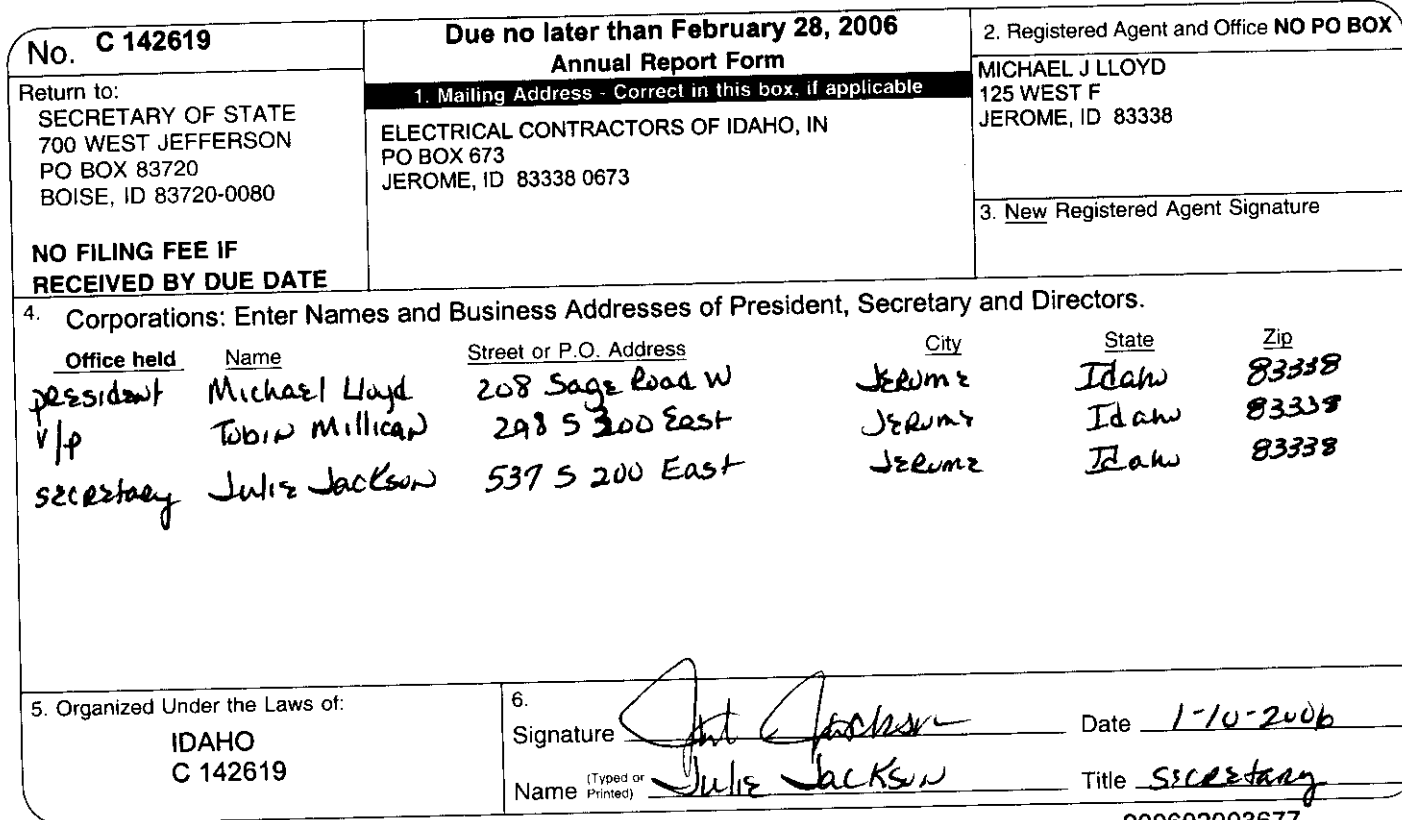 No. C 142619
Return to:
SECRETARY OF STATE
700 WEST JEFFERSON
PO BOX 83720
BOISE, ID 83720-0080
NO FILING FEE IF
RECEIVED BY DUE DATE
Due no later than February 28, 2006
Annual Report Form
1. Mailing Address - Correct in this box, if applicable
ELECTRICAL CONTRACTORS OF IDAHO, IN
PO BOX 673
JEROME, ID 83338 0673
2. Registered Agent and Office NO PO BOX
MICHAEL J LLOYD
125 WEST F
JEROME, ID 83338
3. New Registered Agent Signature
4. Corporations: Enter Names and Business Addresses of President, Secretary and Directors.
Office held Name Street or P.O. Address City State Zip
president Michael Lloyd 208 Sage Road W Jerome Idaho 83338
V/p Tobin Millican 298 S 200 East Jerome Idaho 83338
secretary Julie Jackson 537 S 200 East Jerome Idaho 83338
5. Organized Under the Laws of:
IDAHO
C 142619
6.
Signature Jackson Date 1-10-2006
Name (Typed or Printed) Julie Jackson Title Secretary